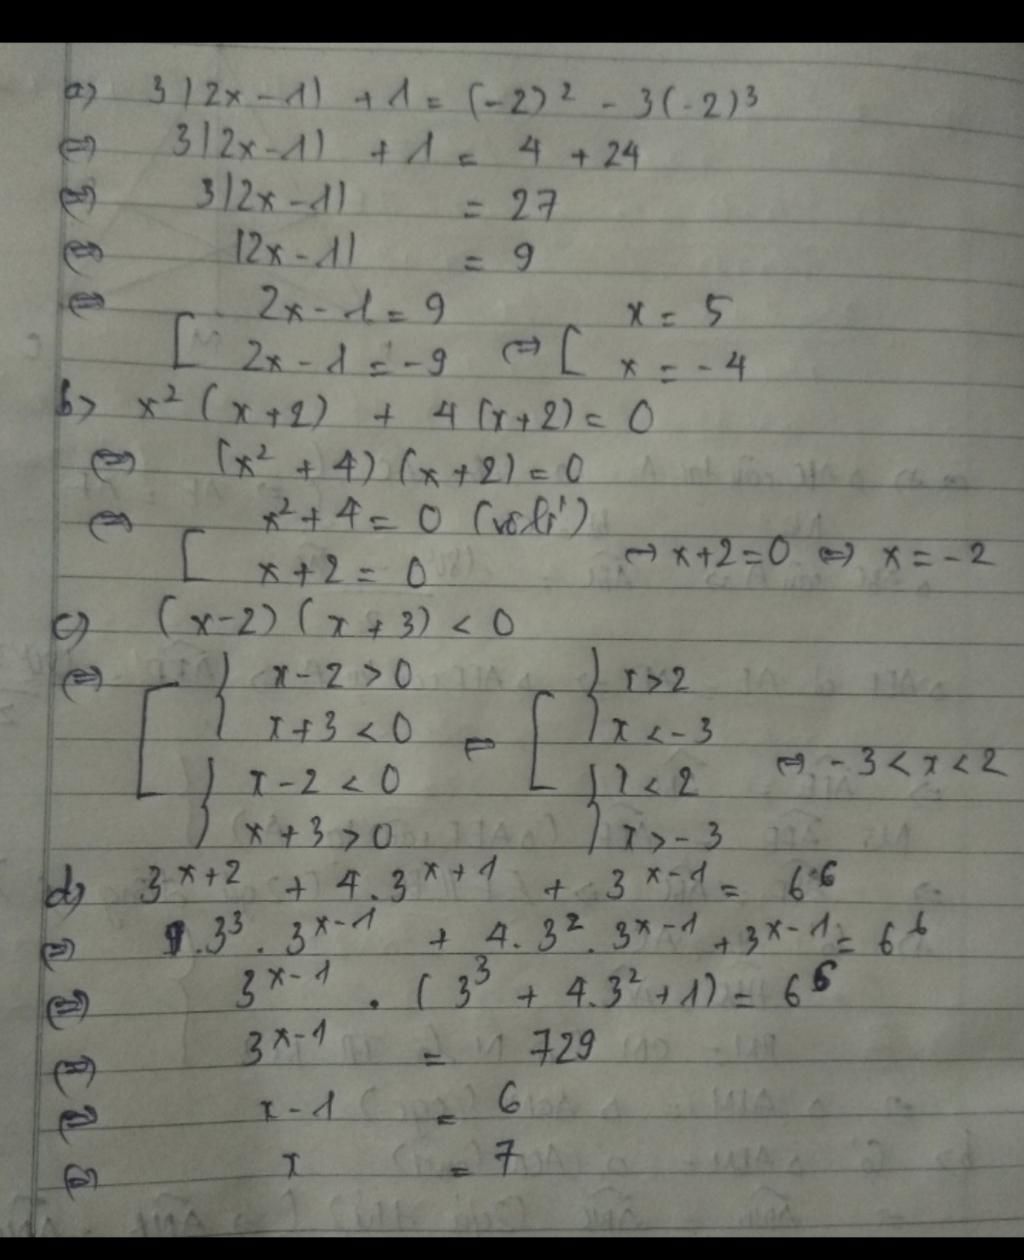 a) 3|2x-1| + 1 = (-2)² - 3(-2)³
⇔ 3|2x-1| + 1 = 4 + 24
⇔ 3|2x-1| = 27
⇔ |2x-1| = 9
⇔ [ 2x-1 = 9 ⇔ [ x = 5
2x-1 = -9 x = -4
b) x²(x+2) + 4(x+2) = 0
⇔ (x²+4)(x+2) = 0
⇔ [ x²+4 = 0 (vô lí)
x+2 = 0 ⇔ x+2=0 ⇔ x = -2
c) (x-2)(x+3) < 0
⇔ [ { x-2 > 0 ⇔ [ { x > 2
x+3 < 0 x < -3
{ x-2 < 0 { x < 2 ⇔ -3 < x < 2
x+3 > 0 x > -3
d) 3^{x+2} + 4.3^{x+1} + 3^{x-1} = 6^6
⇔ 3³.3^{x-1} + 4.3².3^{x-1} + 3^{x-1} = 6^6
⇔ 3^{x-1} . (3³ + 4.3² + 1) = 6^6
⇔ 3^{x-1} = 729
⇔ x-1 = 6
⇔ x = 7